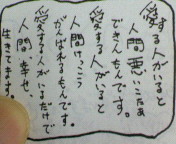 愛する人がいると
人間悪いこたあ
できんもんです。
愛する人がいると
人間けっこう
がんばれるもんです。
愛する人がいるだけで
人間幸せ、
生きてます。